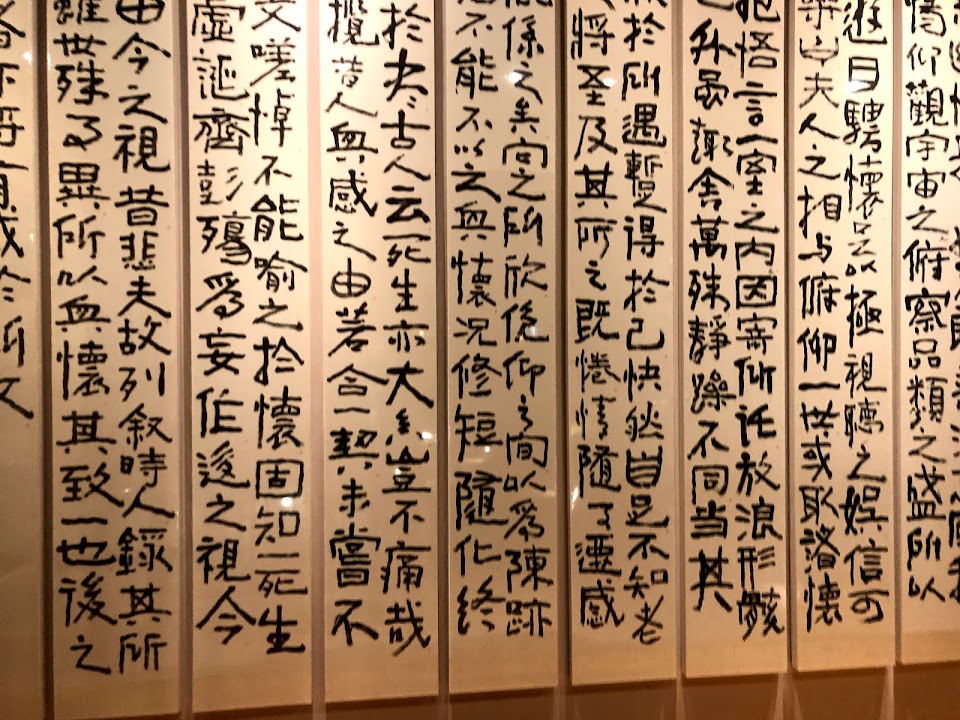 仰觀宇宙之俯察品類之盛所以
遊目騁懷足以極視聽之娛信可
樂也夫人之相与俯仰一世或取諸懷
抱悟言一室之內因寄所託放浪形骸
外雖趣舍萬殊靜躁不同當其
於所遇暫得於己快然自足不知老
將至及其所之既惓情隨事遷感
係之矣向之所欣俛仰之間以為陳跡
不能不以之興懷況修短隨化終
於盡古人云死生亦大矣豈不痛哉
攬昔人興感之由若合一契未嘗不
文嗟悼不能喻之於懷固知一死生
虛誕齊彭殤為妄作後之視今
由今之視昔悲夫故列叙時人錄其所
雖世殊事異所以興懷其致一也後之
者亦將有感於斯文